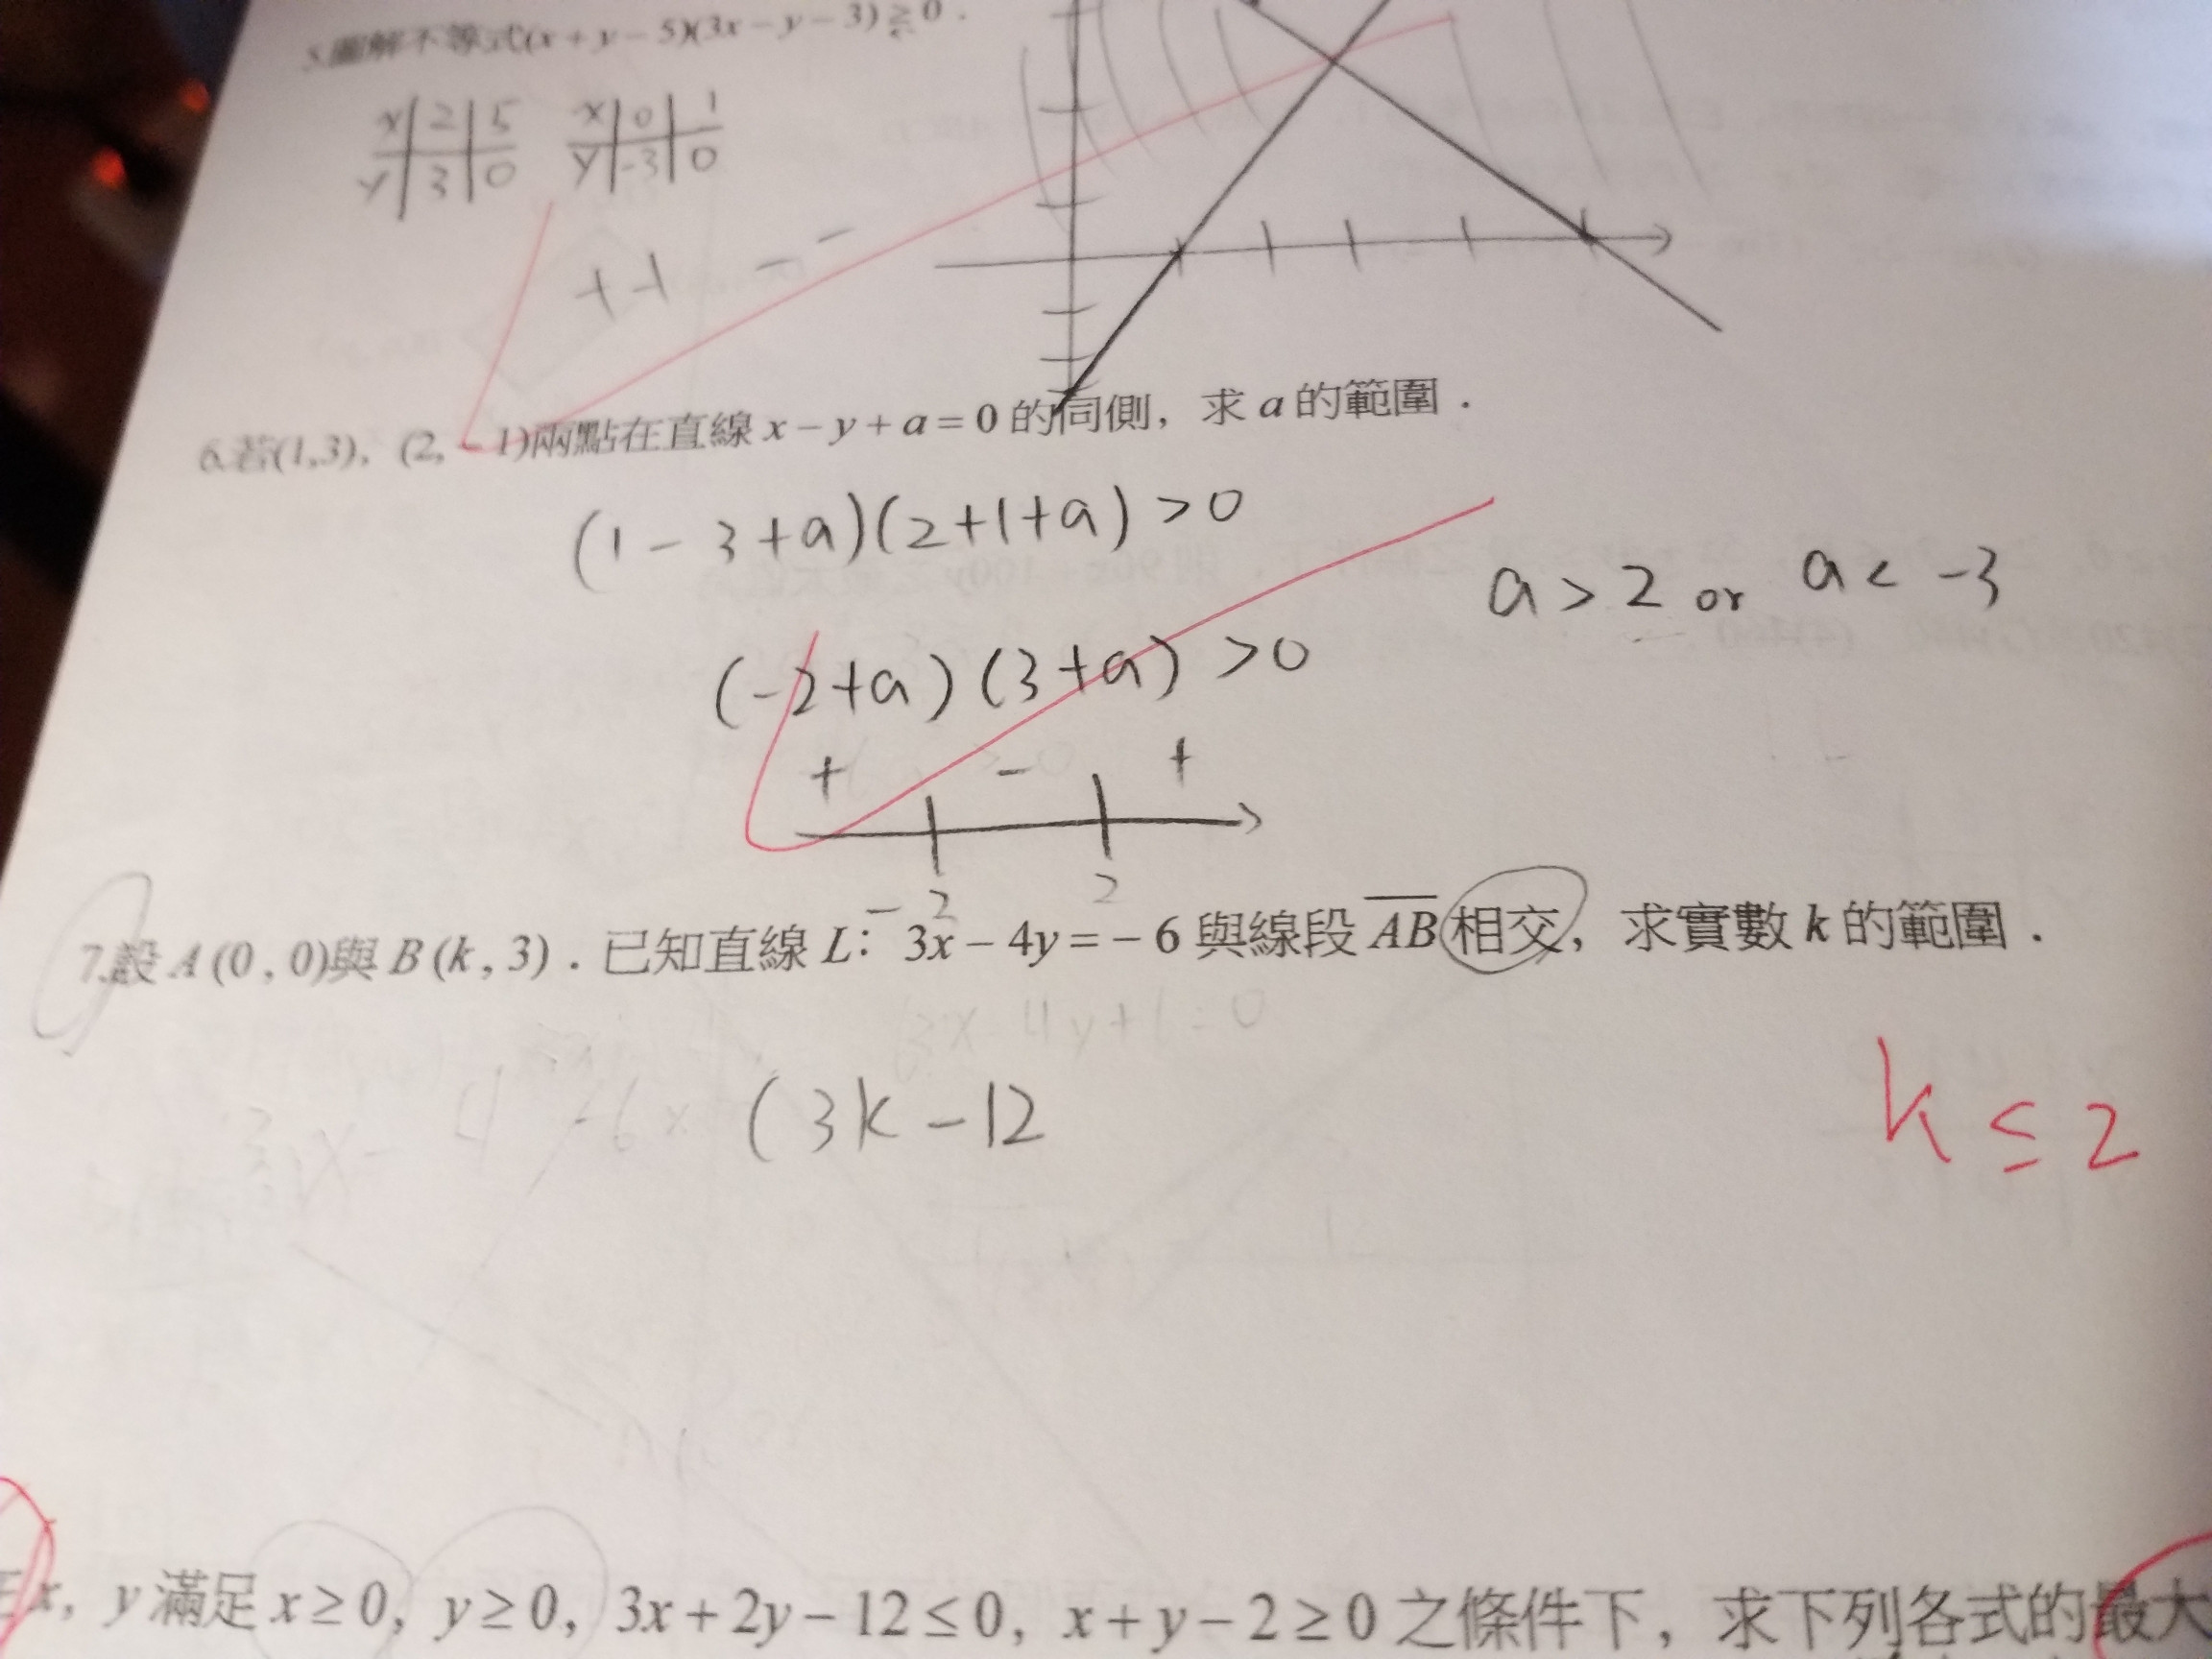 5.圖解不等式(x+y-5)(3x-y-3)≧0.
x | 2 | 5   x | 0 | 1
y | 3 | 0   y | -3 | 0
++ --
6.若(1,3), (2, -1)兩點在直線 x-y+a=0 的同側, 求 a 的範圍.
(1-3+a)(2+1+a)>0
a>2 or a<-3
(-2+a)(3+a)>0
+ - +
-2 2
7.設 A(0,0)與 B(k,3). 已知直線 L: 3x-4y=-6 與線段 AB 相交, 求實數 k 的範圍.
(3k-12
k≤2
x, y 滿足 x≥0, y≥0, 3x+2y-12≤0, x+y-2≥0 之條件下, 求下列各式的最大